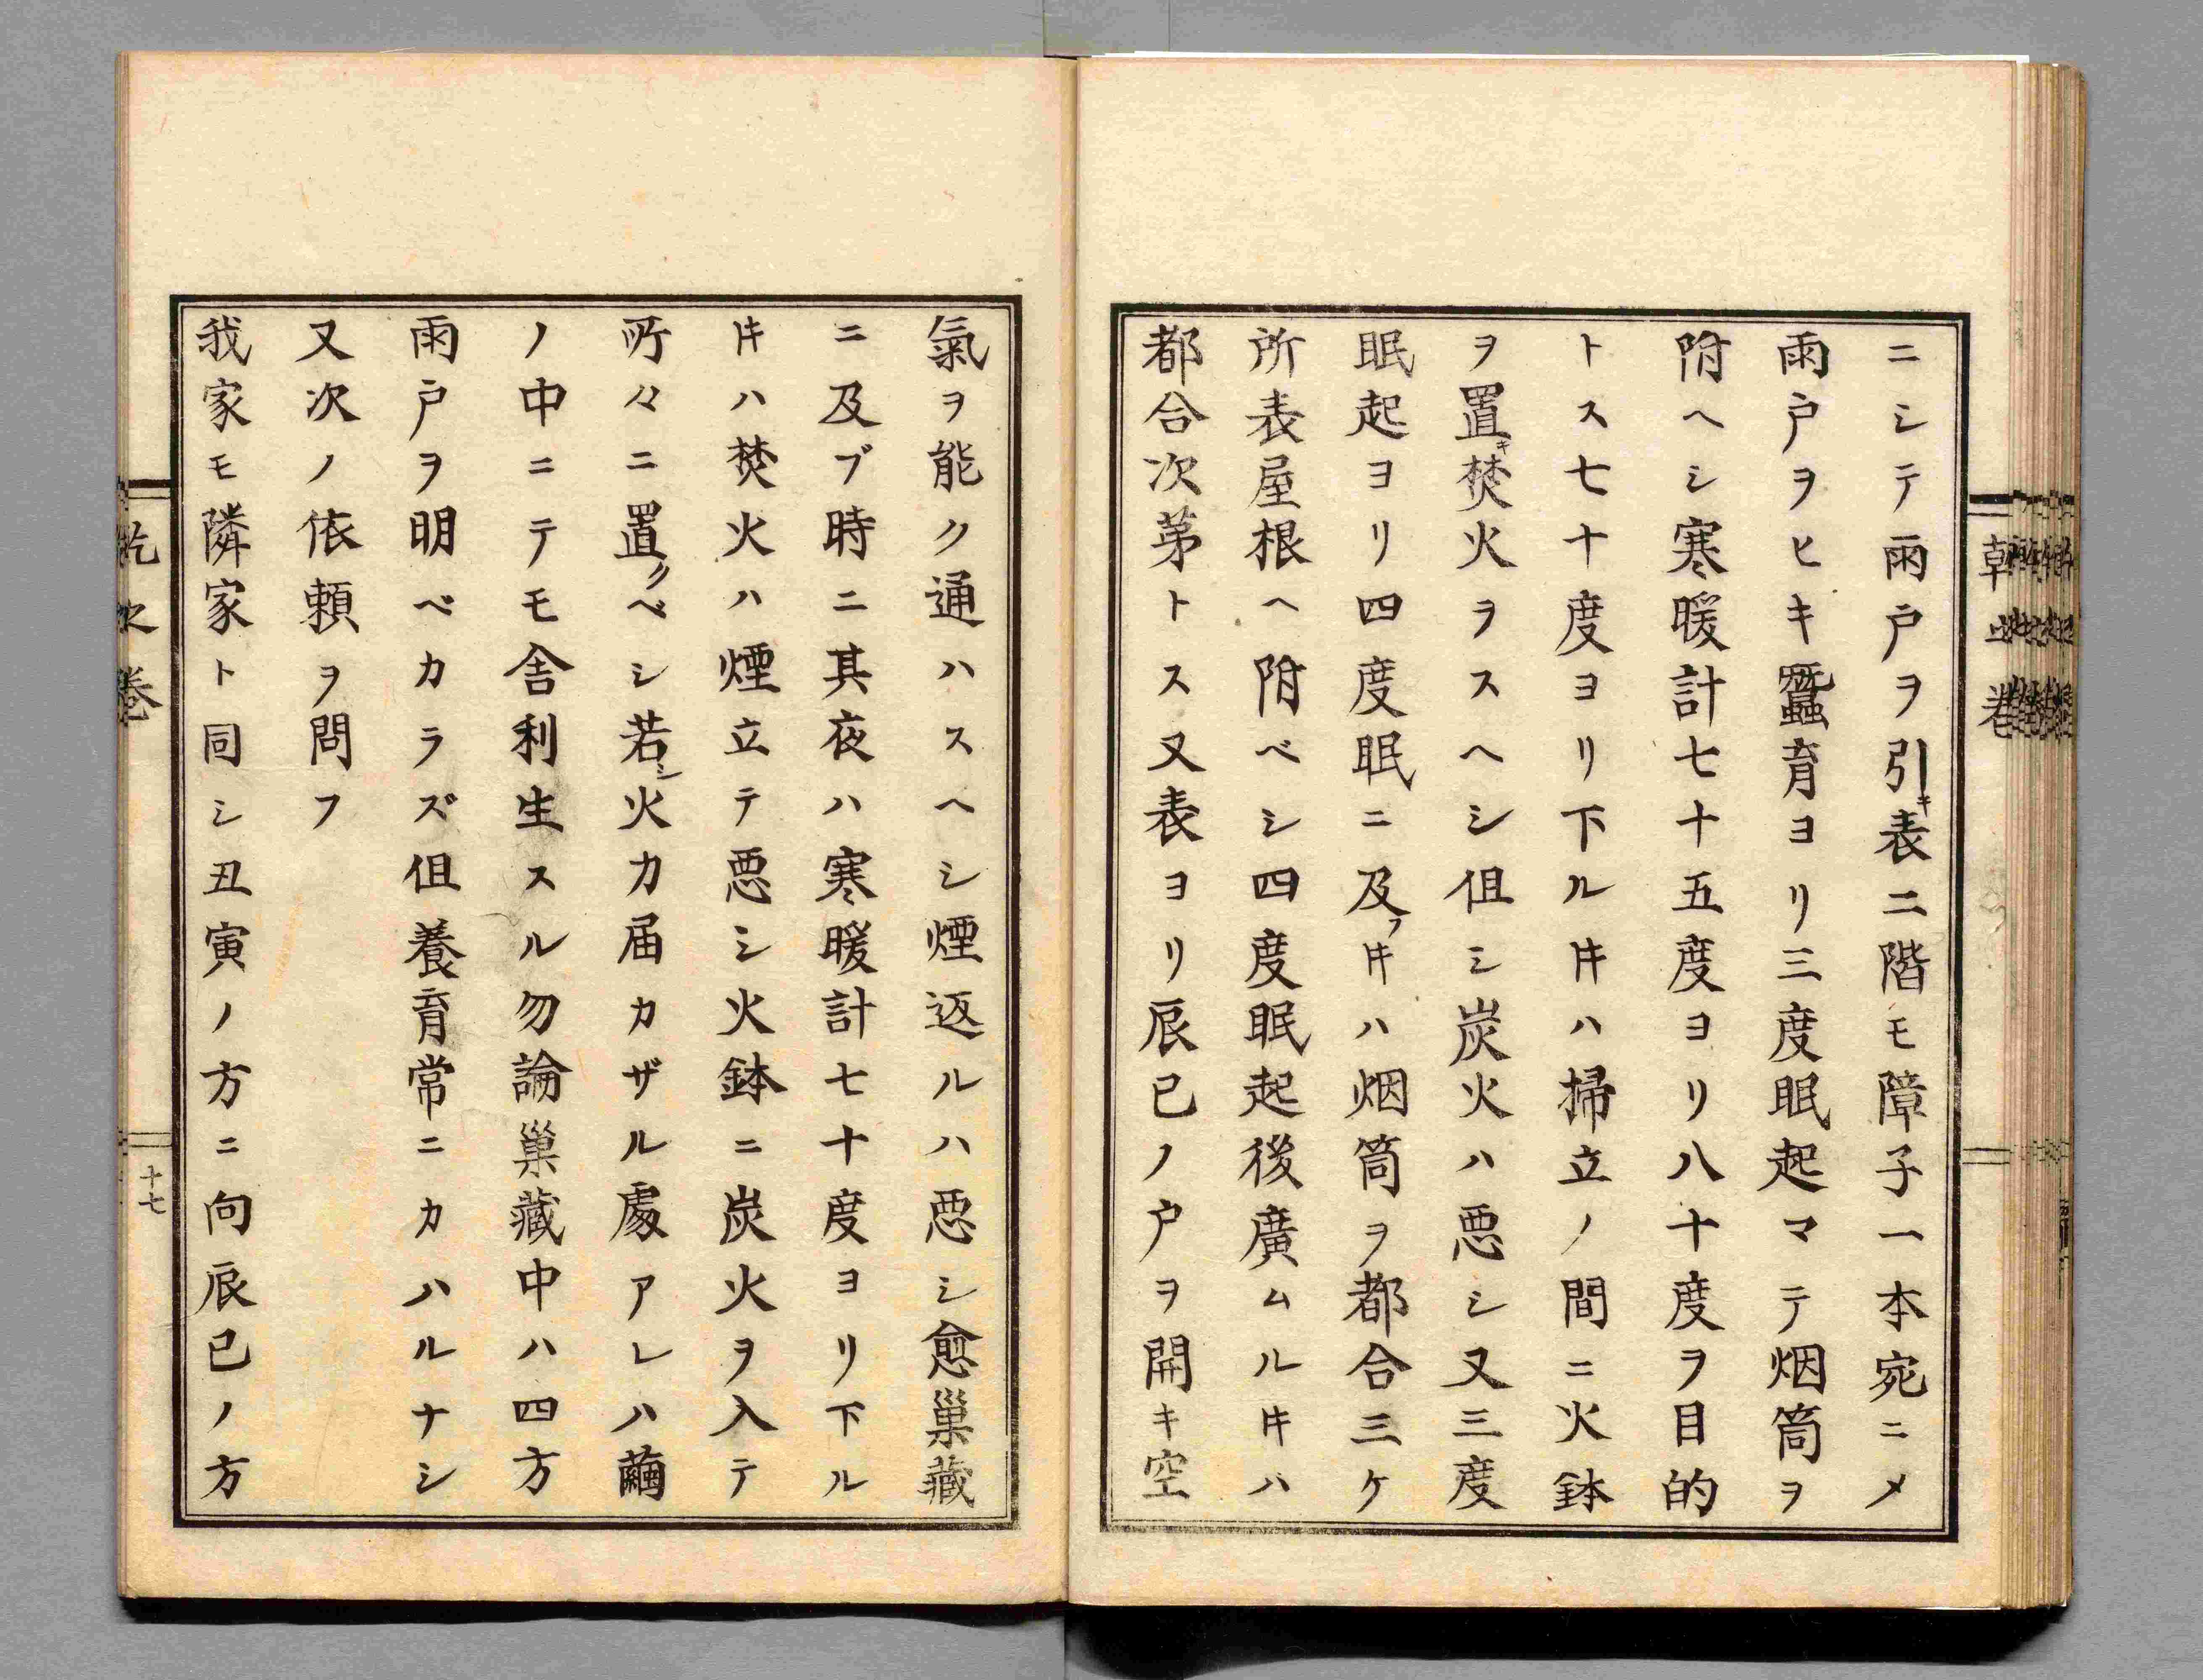 ニシテ雨戸ヲ引キ表二階モ障子一本宛ニメ
雨戸ヲヒキ蠶育ヨリ三度眠起マテ烟筒ヲ
附ヘシ寒暖計七十五度ヨリ八十度ヲ目的
トス七十度ヨリ下ルㇳキハ掃立ノ間ニ火鉢
ヲ置キ焚火ヲスヘシ伹シ炭火ハ悪シ又三度
眠起ヨリ四度眠ニ及フㇳキハ烟筒ヲ都合三ケ
所表屋根ヘ附ベシ四度眠起後廣ムルㇳキハ
都合次苐トス又表ヨリ辰巳ノ戸ヲ開キ空
氣ヲ能ク通ハスヘシ煙返ルハ悪シ愈巣藏
ニ及ブ時ニ其夜ハ寒暖計七十度ヨリ下ル
ㇳキハ焚火ハ煙立テ悪シ火鉢ニ炭火ヲ入テ
所々ニ置クベシ若シ火力届カザル處アレハ繭
ノ中ニテモ舎利生スル勿論巣藏中ハ四方
雨戸ヲ明ベカラズ伹養育常ニカハルナシ
又次ノ依頼ヲ問フ
我家モ隣家ト同シ丑寅ノ方ニ向辰巳ノ方
乾之巻
十七